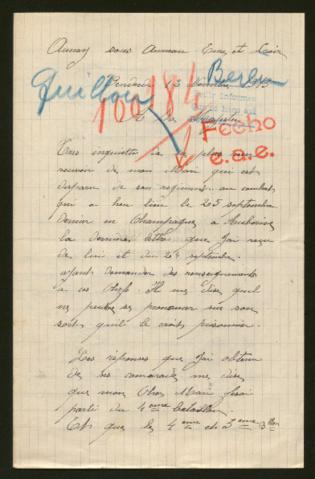 Aunay sous Auneau Eure et Loir
Guilloux Berlin
Vendredi 1915
100184
Fecho
e.a.e.
Très inquiète de ne plus
recevoir de mon Mari qui est
disparu de son régiment au combat
qui a heu lieu le 25 septembre
dernier en Champagne à Auberive
la dernière lettre que j'ai reçue
de lui est du 24 septembre.
ayant demander des renseignements
à ces Chefs Il me dise quil
ne peuve se prononcer sur son
sort quil le croit prisonnier.
Des réponses que j'ai obtenu
de ses camarade me dise
que mon Cher Mari ferai
parti du 4ème bataillon
Et que les 4ème et 5ème Bon